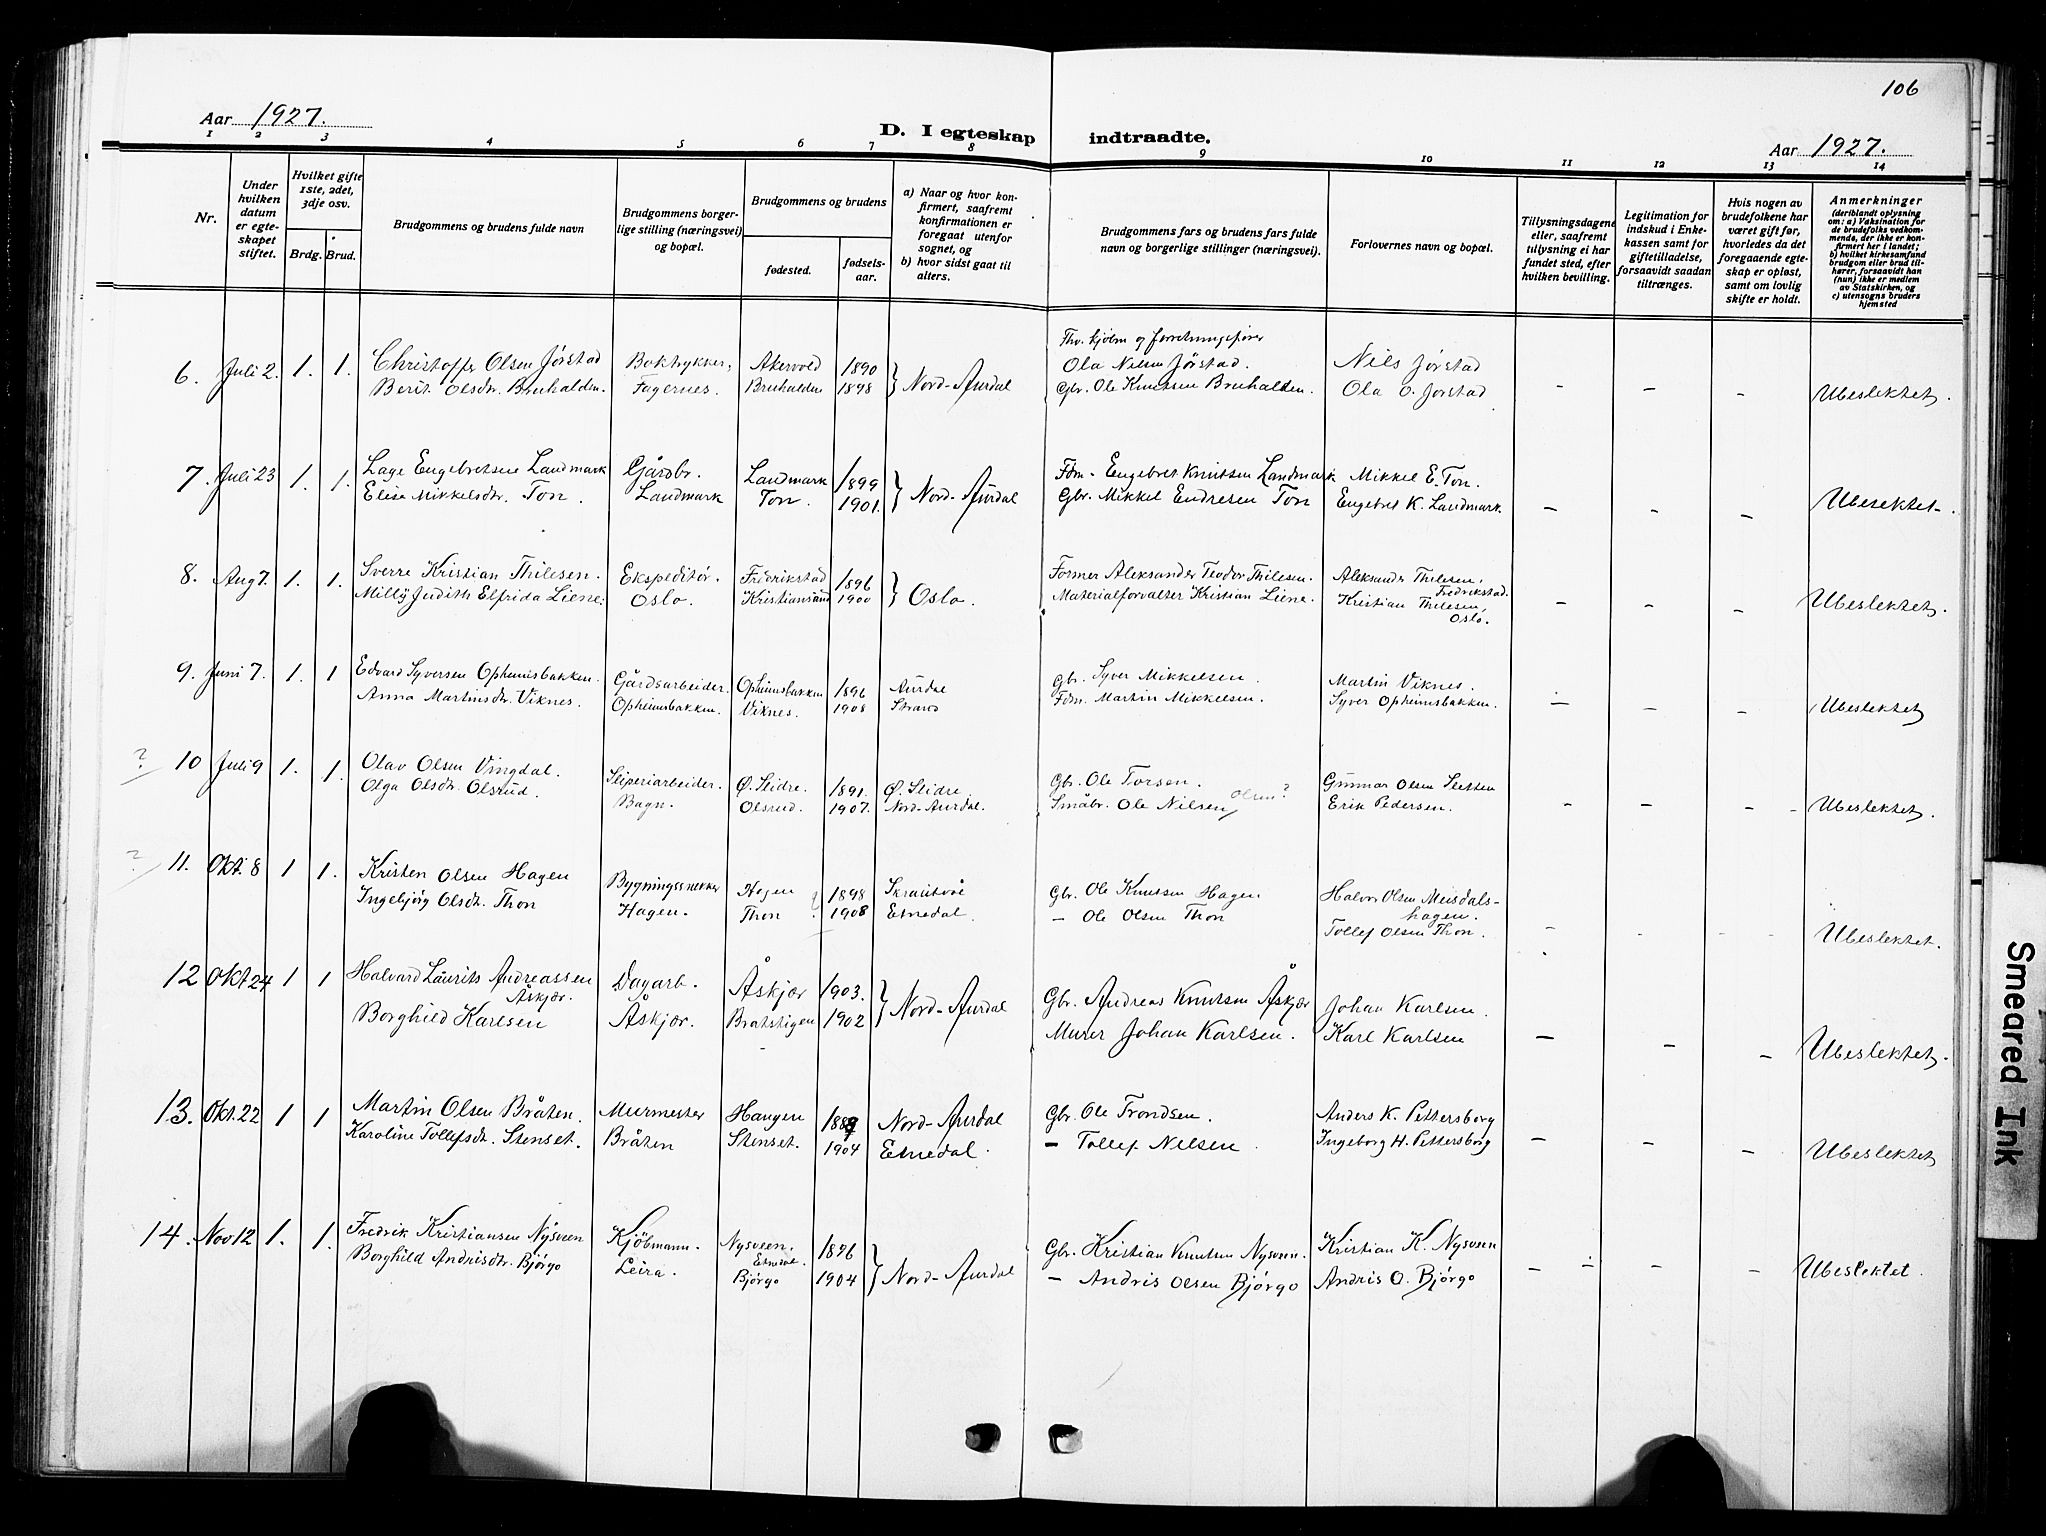 106
Aar 1927.
D. I egteskap indtraadte.
Aar 1927.
1 2 3 4 5 6 7 8 9 10 11 12 13 14
Nr.
Under hvilken datum er egteskapet stiftet.
Hvilket gifte 1ste, 2det, 3dje osv.
Brdg. Brud.
Brudgommens og brudens fulde navn
Brudgommens borgerlige stilling (næringsvei) og bopæl.
Brudgommens og brudens
fødested.
fødselsaar.
a) Naar og hvor konfirmert, saafremt konfirmationen er foregaat utenfor sognet, og
b) hvor sidst gaat til alters.
Brudgommens fars og brudens fars fulde navn og borgerlige stillinger (næringsvei).
Forlovernes navn og bopæl.
Tillysningsdagene eller, saafremt tillysning ei har fundet sted, efter hvilken bevilling.
Legitimation for indskud i Enkekassen samt for giftetilladelse, forsaavidt saadan tiltrænges.
Hvis nogen av brudefolkene har været gift før, hvorledes da det foregaaende egteskap er opløst, samt om lovlig skifte er holdt.
Anmerkninger
(deriblandt oplysning om: a) Vaksination for de brudefolks vedkommende, der ikke er konfirmert her i landet;
b) hvilket kirkesamfund brudgom eller brud tilhører, forsaavidt han (hun) ikke er medlem av Statskirken, og
c) utensogns bruders hjemsted
6. Juli 2. 1. 1. Christoffer Olsen Jørstad Boktrykker, Akervold 1890 } Nord-Aurdal Ola Nilsen Jørstad. Nils Jørstad
Berit Olsdtr. Bruhalden. Fagernes. Bruhalden 1898 Gbr. Ole Knutsen Bruhalden. Ola O. Jørstad – – – Ubeslektet.
7. Juli 23 1. 1. Lage Engebretsen Landmark Gårdbr. Landmark 1899 } Nord-Aurdal Fdm. Engebret Knutsen Landmark Mikkel E. Ton.
Elise Mikkelsdtr. Ton. Landmark Ton. 1901. Gbr. Mikkel Endresen Ton Engebret K. Landmark. – – – Ubesektet.
8. Aug 7. 1. 1. Sverre Kristian Thilesen. Ekspeditør. Fredrikstad 1896 } Oslo. Former Aleksander Teodor Thilesen. Aleksander Thilesen, Fredrikstad.
Milly Judith Elfrida Liene. Oslo. Kristiansand 1900 Materialforvalter Kristian Liene. Kristian Thilesen, Oslo. – – – Ubeslektet.
9. Juni 7. 1. 1 Edvard Syversen Opheimsbakken. Gårdsarbeider. Opheimsbakken 1896 Aurdal Gbr. Syver Mikkelsen. Martin Viknes.
Anna Martinsdtr. Viknes. Opheimsbakken. Viknes. 1908 Strand Fdm. Martin Mikkelsen. Syver Opheimsbakken. – – – Ubeslektet
? 10 Juli 9 1. 1. Olav Olsen Vingdal. Sliperiarbeider. Ø. Slidre. 1891. Ø. Slidre. Gbr. Ole Torsen. Gunnar Olsen Sletten
Olga Olsdtr. Olsrud. Bagn. Olsrud. 1907. Nord-Aurdal. Småbr. Ole Nilsen Olsen? Erik Pedersen. – – – – Ubeslektet.
? 11. Okt. 8 1 1. Kristen Olsen Hagen Bygningssnekker Hagen 1898 Skrautvål Gbr. Ole Knutsen Hagen Halvor Olsen Meisdalshagen.
Ingebjørg Olsdtr. Thon Hagen. Thon ? 1908 Etnedal. – Ole Olsen Thon Tollef Olsen Thon. – – – – Ubeslektet.
12 Okt 24 1 1 Halvard Laurits Andreassen Åskjær. Dagarb. Åskjær 1903. } Nord-Aurdal Gbr. Andreas Knutsen Åskjær Johan Karlsen.
Borghild Karlsen Åskjær. Bratstigen 1902 Murer Johan Karlsen. Karl Karlsen – – – Ubeslektet.
13. Okt. 22 1 1 Martin Olsen Bråten. Murmester Haugen 1889 Nord-Aurdal Gbr. Ole Trondsen. Anders K. Pettersborg
Karoline Tollefsdtr. Stenset. Bråten Stenset. 1904 Etnedal. – Tollef Nilsen. Ingeborg H. Pettersborg – – – Ubeslektet
14. Nov 12 1. 1. Fredrik Kristiansen Nysveen Kjöbmann. Nysveen, Etnedal. 1896 } Nord-Aurdal Gbr. Kristian Knutsen Nysveen. Kristian K. Nysveen
Borghild Andrisdtr. Bjørgo Leira. Bjørgo 1904 – Andris Olsen Bjørgo Andris O. Bjørgo – – – – Ubeslektet.
Smeared Ink